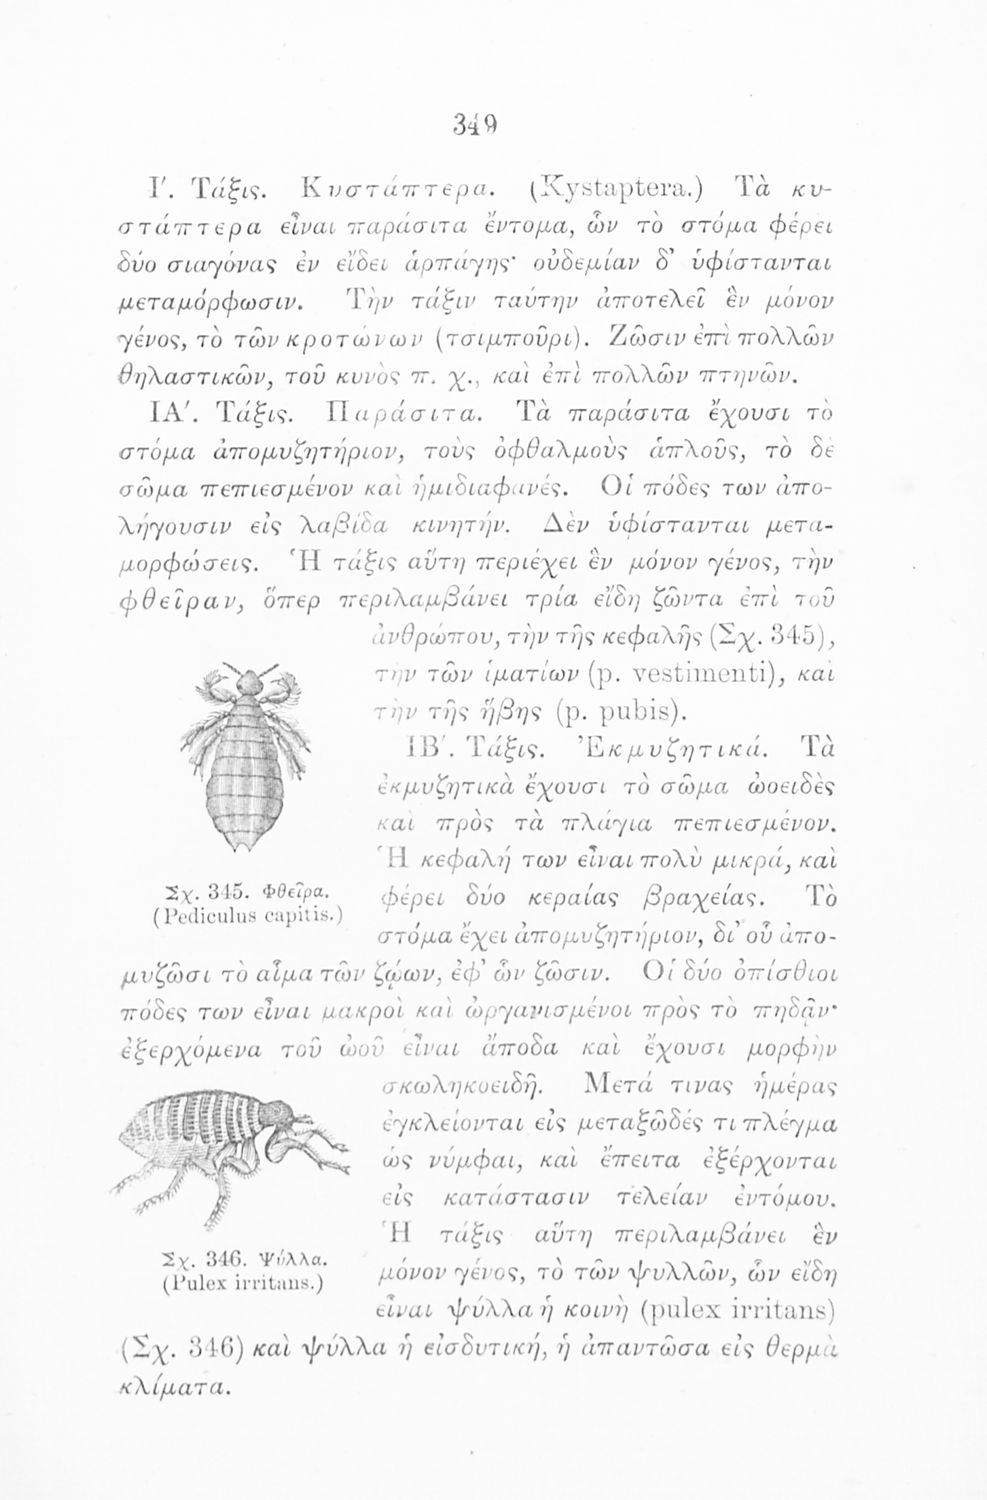 349
Ι′. Τάξις. Κυστάπτερα. (Kystaptera.) Τὰ κυ-
στάπτερα εἶναι παράσιτα ἔντομα, ὧν τὸ στόμα φέρει
δύο σιαγόνας ἐν εἴδει ἁρπάγης· οὐδεμίαν δ’ ὑφίστανται
μεταμόρφωσιν. Τὴν τάξιν ταύτην ἀποτελεῖ ἓν μόνον
γένος, τὸ τῶν κροτώνων (τσιμποῦρι). Ζῶσιν ἐπὶ πολλῶν
θηλαστικῶν, τοῦ κυνὸς π. χ., καὶ ἐπὶ πολλῶν πτηνῶν.
ΙΑ′. Τάξις. Παράσιτα. Τὰ παράσιτα ἔχουσι τὸ
στόμα ἀπομυζητήριον, τοὺς ὀφθαλμοὺς ἁπλοῦς, τὸ δὲ
σῶμα πεπιεσμένον καὶ ἡμιδιαφανές. Οἱ πόδες των ἀπο-
λήγουσιν εἰς λαβίδα κινητήν. Δὲν ὑφίστανται μετα-
μορφώσεις. Ἡ τάξις αὕτη περιέχει ἓν μόνον γένος, τὴν
φθεῖραν, ὅπερ περιλαμβάνει τρία εἴδη ζῶντα ἐπὶ τοῦ
ἀνθρώπου, τὴν τῆς κεφαλῆς (Σχ. 345),
τὴν τῶν ἱματίων (p. vestimenti), καὶ
τὴν τῆς ἥβης (p. pubis).
ΙΒ′. Τάξις. Ἐκμυζητικά. Τὰ
ἐκμυζητικὰ ἔχουσι τὸ σῶμα ὠοειδὲς
καὶ πρὸς τὰ πλάγια πεπιεσμένον.
Ἡ κεφαλή των εἶναι πολὺ μικρά, καὶ
φέρει δύο κεραίας βραχείας. Τὸ
στόμα ἔχει ἀπομυζητήριον, δι’ οὗ ἀπο-
Σχ. 345. Φθεῖρα.
(Pediculus capitis.)
μυζῶσι τὸ αἷμα τῶν ζῴων, ἐφ’ ὧν ζῶσιν. Οἱ δύο ὀπίσθιοι
πόδες των εἶναι μακροὶ καὶ ὠργανισμένοι πρὸς τὸ πηδᾷν·
ἐξερχόμενα τοῦ ὠοῦ εἶναι ἄποδα καὶ ἔχουσι μορφὴν
σκωληκοειδῆ. Μετά τινας ἡμέρας
ἐγκλείονται εἰς μεταξῶδές τι πλέγμα
ὡς νύμφαι, καὶ ἔπειτα ἐξέρχονται
εἰς κατάστασιν τελείαν ἐντόμου.
Ἡ τάξις αὕτη περιλαμβάνει ἓν
μόνον γένος, τὸ τῶν ψυλλῶν, ὧν εἴδη
εἶναι ψύλλα ἡ κοινὴ (pulex irritans)
Σχ. 346. Ψύλλα.
(Pulex irritans.)
(Σχ. 346) καὶ ψύλλα ἡ εἰσδυτική, ἡ ἀπαντῶσα εἰς θερμὰ
κλίματα.